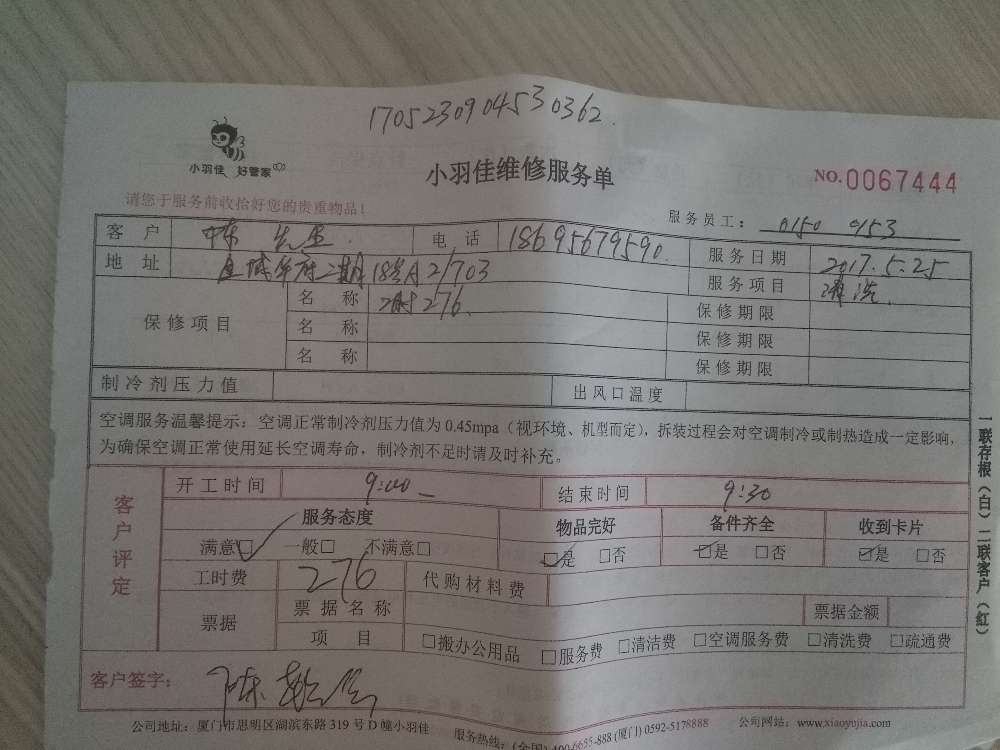 170523090453 0362
小羽佳 好管家
小羽佳维修服务单
NO.0067444
请您于服务前收拾好您的贵重物品!
服务员工: 0150 0153
客户 陈先生 电话 18695679590 服务日期 2017.5.25
地址 二期18 2/703 服务项目 清洗
保修项目 名称 276 保修期限
名称 保修期限
名称 保修期限
制冷剂压力值 出风口温度
空调服务温馨提示:空调正常制冷剂压力值为0.45mpa(视环境、机型而定),拆装过程会对空调制冷或制热造成一定影响,
为确保空调正常使用延长空调寿命,制冷剂不足时请及时补充。
客户评定
开工时间 9:00 结束时间 9:30
服务态度 物品完好 备件齐全 收到卡片
满意☑ 一般□ 不满意□ ☑是 □否 ☑是 □否 ☑是 □否
工时费 276 代购材料费
票据 票据名称 票据金额
项目 □搬办公用品 □服务费 □清洁费 □空调服务费 □清洗费 □疏通费
客户签字: 陈
公司地址:厦门市思明区湖滨东路319号D幢小羽佳 服务热线:(全国)400-6655-888 (厦门) 0592-5178888 公司网站:www.xiaoyujia.com
一联存根(白)二联客户(红)